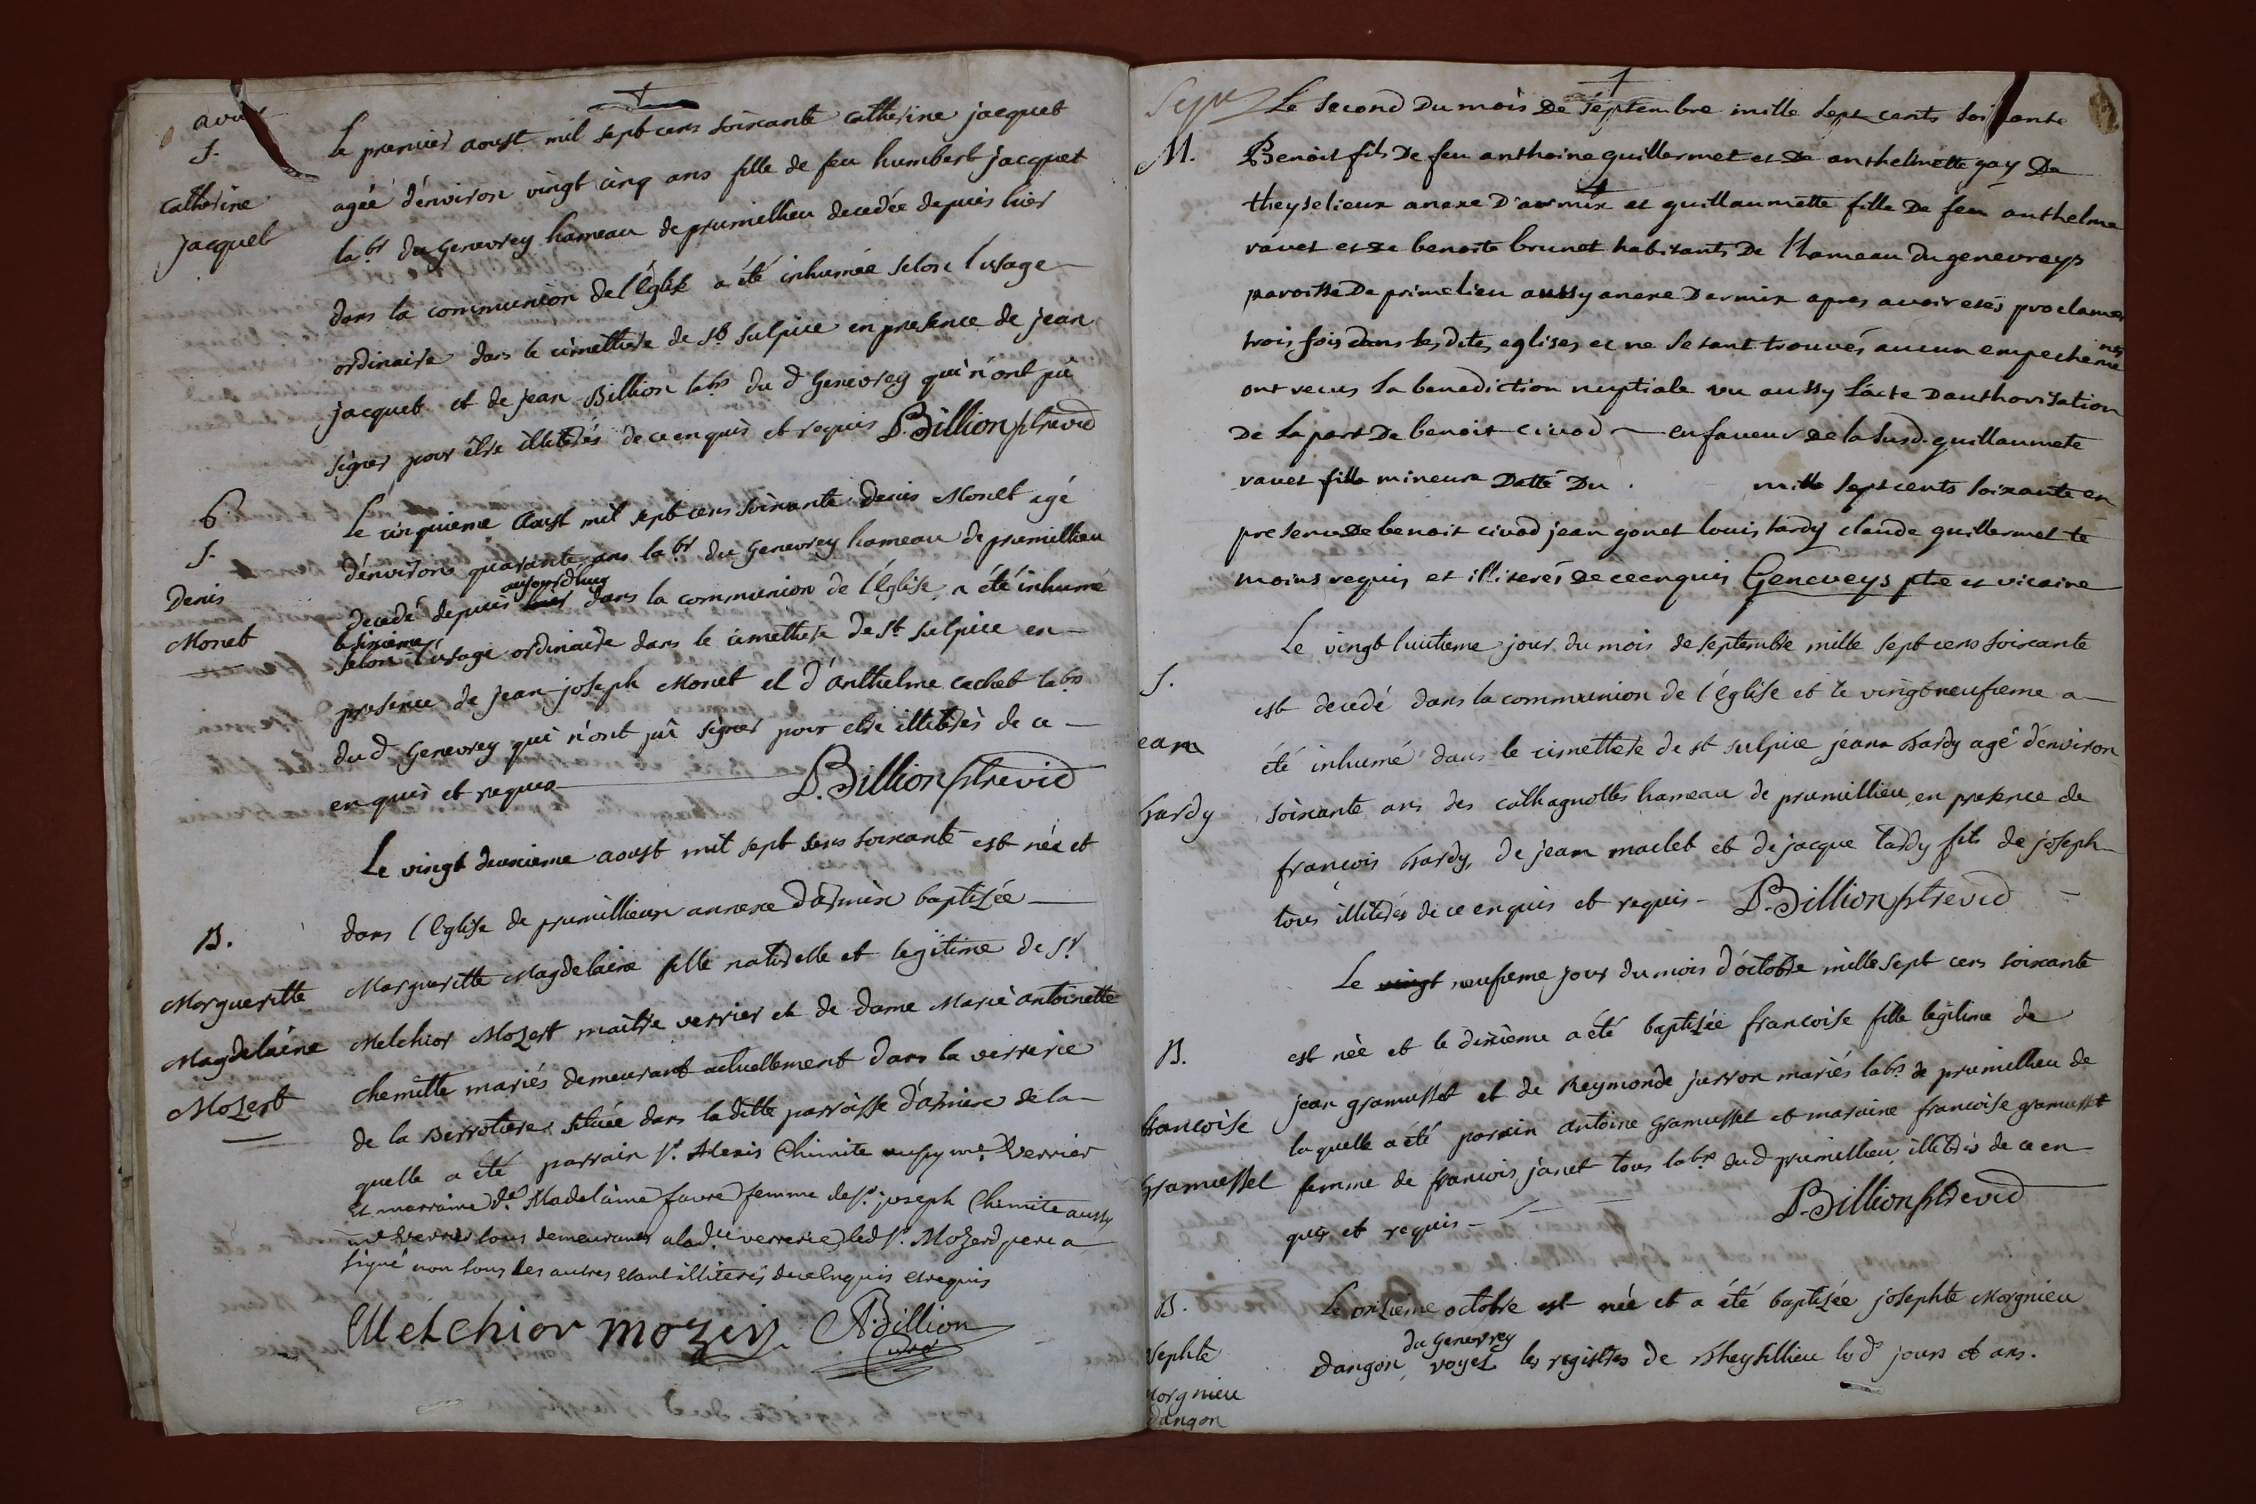 aoust
S.
Catherine
jacquet
Le premier aoust mil sept cens soixante catherine jacquet
agéé d'énviron vingt cinq ans fille de feu humbert jacquet
lab.r du Genevrey hameau de prumellieu decedée depuis hier
dans la communion de l'Eglise a été inhumée selon l'usage
ordinaire dans le cimettiere de St sulpice en presence de jean
jacquet et de jean Billion labrs du d Genevrey qui n'ont pû
signer pour étre illiterés de ce enquis et requis P. Billion ptre vic
6.
S.
Denis
Monet
Le cinquieme aoust mil sept cens soixante denis Monet agé
d'énviron quarante ans lab.r du Genevrey hameau de prumillieu
aujourdhuy
decedé depuis hier dans la communion de l'Eglise a été inhumé
le sixieme
selon l'usage ordinaire dans le cimettiere de St sulpice en
presence de jean joseph Monet et d'anthelme cachet labrs
dud Genevrey qui n'ont pû signer pour etre illiterés de ce
enquis et requis P. Billion ptre vic
B.
Margueritte
Magdelaine
Mozert
Le vingt deuxieme aoust mil sept cens soixante est née et
dans l'Eglise de prumillieux annexe d'armix baptizée
Margueritte Magdelaine fille naturelle et legitime de Sr
Melchior Mozert maitre verrier et de dame Marie antoinette
chemitte mariés demeurant actuellement dans la verrerie
de la Birrotiere située dans ladite parroisse d'armix de la
quelle a été parrain sr. Alexis Chimite aussy me. Verrier
et marraine de. Madelaine favre femme de sr. joseph Chimite aussy
me Verrier tous demeurants a la dte verrerie led sr. Mozerd pere a
signé non tous les autres etant illiterés de ce enquis et requis
Melchior mozer A. Billion
curé
Sepre
M.
Le second Du mois De septembre mille sept cents soixante
Benoit fils De feu anthoine guillermet et De anthelmette gay De
theyselieux anexe D'armix et guillaumette fille De feu anthelme
ravet et De benoite brunet habitants De l'hameau du genevreys
paroisse De primelieu aussy anexe Darmix apres avoir etés proclamés
trois fois dans les dites eglises et ne se tant trouvés aucun empecheme
nts
ont recus la benediction nuptiale vu aussy l'acte Dauthorisation
De la part De benoit civod en faveur de la susd. guillaumete
ravet fille mineure Datté Du . mille sept cents soixante en
presence De benoit civod jean gonet louis tardy claude guillermet te
moins requis et illiterés De ce enquis Geneveys ptre et vicaire
S.
ean
tardy
Le vingt huitieme jour du mois de septembre mille sept cens soixante
est decedé dans la communion de l'église et le vingt neufieme a
été inhumé dans le cimettiere de st sulpice jean tardy agé d'environ
soixante ans des cathagnolles hameau de prumillieu en presence de
francois tardy, de jean maclet et de jacque tardy fils de joseph
tous illiterés de ce enquis et requis - P. Billion ptre vic
B.
francoise
Gramusset
Le vingt neufieme jour du mois d'octobre mille sept cens soixante
est née et le dixieme a été baptizée francoise fille legitime de
jean gramusset et de Reymonde jurron mariés labrs de prumillieu de
laquelle a été parain antoine Gramusset et maraine francoise gramusset
femme de francois janet tous labrs dud prumillieu illiterés de ce en
quis et requis - P. Billion ptre vic
B.
osephte
orgnieu
dangon
Le onzieme octobre est née et a été baptizée josephte Morgnieu
du Genevrey
dangon, voyez les registres de theysillieu les d jours et ans.